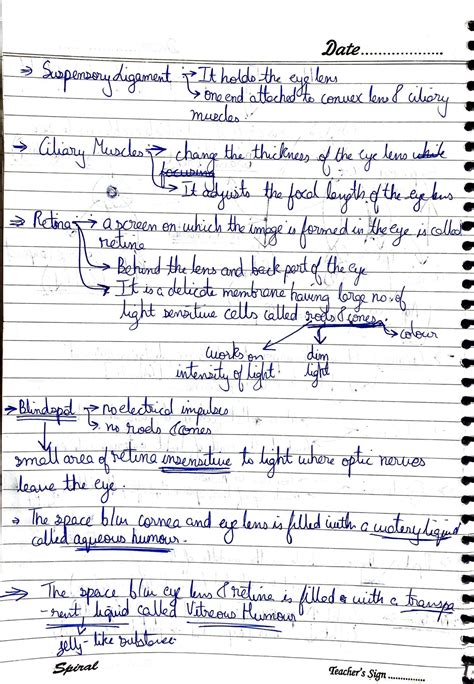 Date....................
⇒ Suspensory ligament → It holds the eye lens
↳ one end attached to convex lens & ciliary
muscles.
→ Ciliary Muscles → change the thickness of the eye lens while
focusing
→ It adjusts the focal length of the eye lens
⇒ Retina → a screen on which the image is formed in the eye is called
retine
→ Behind the lens and back part of the eye
→ It is a delicate membrane having large no. of
light sensitive cells called rods & cones.
→ colour
works on dim
intensity of light light
→ Blindspot → no electrical impulses
↳ no rods & cones
small area of retina insensitive to light where optic nerves
leave the eye.
→ The space b/w cornea and eye lens is filled with a watery liquid
called aqueous humour.
⇒ The space b/w eye lens & retina is filled with a transpa
-rent liquid called Vitreous Humour
jelly-like substance
Spiral
Teacher's Sign..............